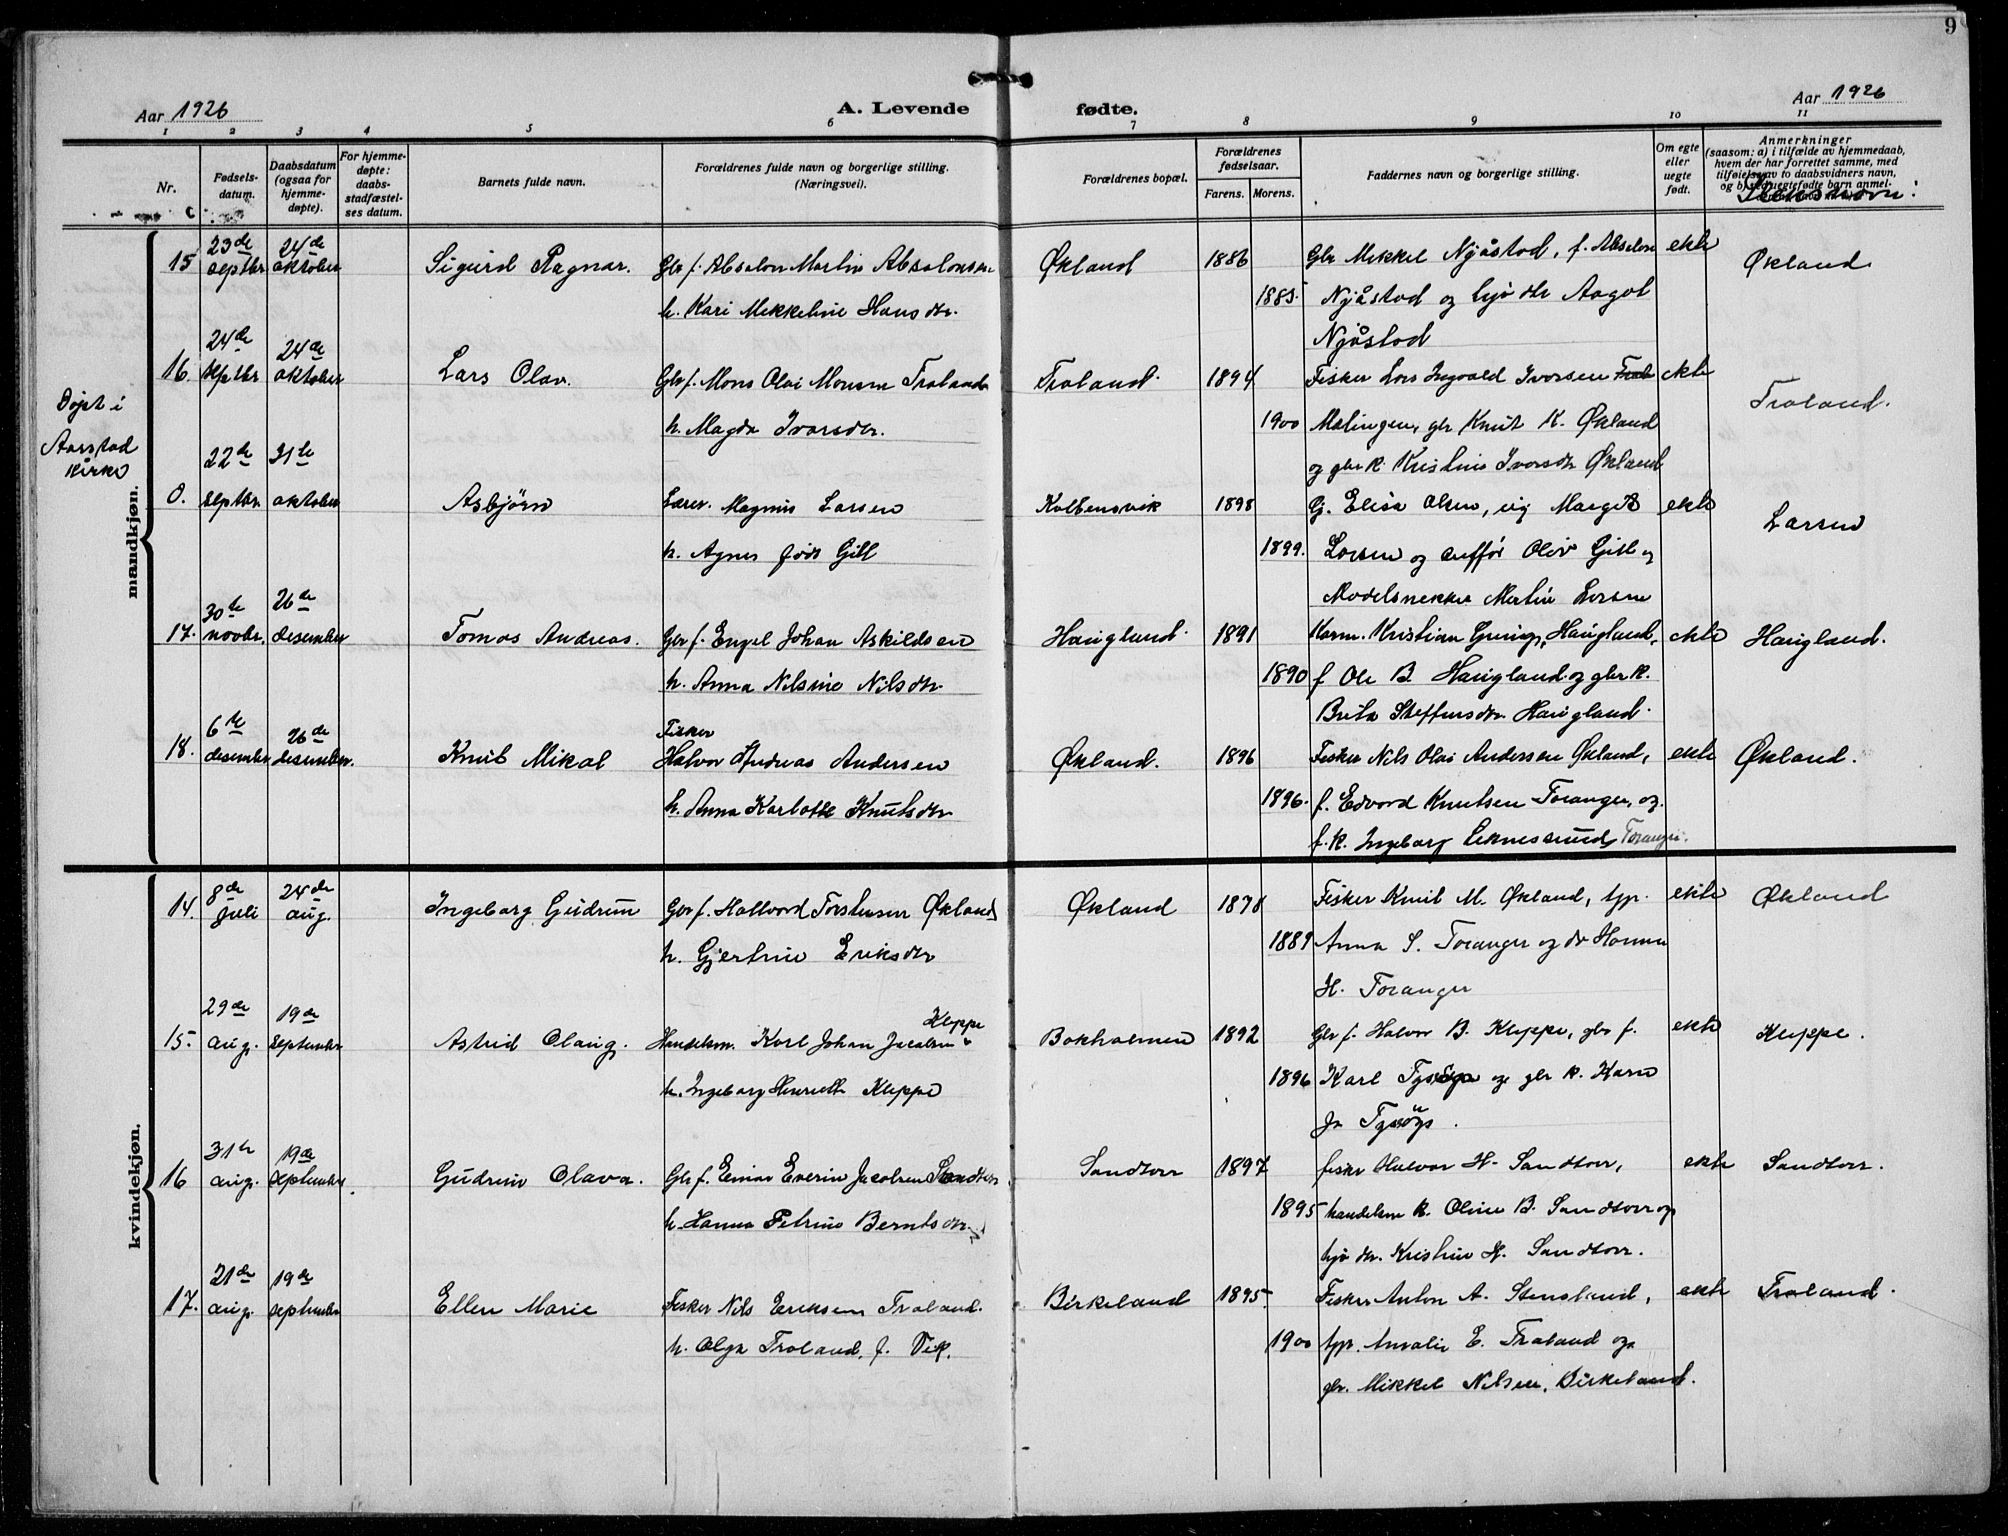 9
Aar 1926
A. Levende fødte.
Aar 1926
1 2 3 4 5 6 7 8 9 10 11
Nr.
Fødsels-
datum.
Daabsdatum
(ogsaa for
hjemme-
døpte).
For hjemme-
døpte:
daabs-
stadfæstel-
ses datum.
Barnets fulde navn.
Forældrenes fulde navn og borgerlige stilling.
(Næringsvei).
Forældrenes bopæl.
Forældrenes
fødselsaar.
Farens. Morens.
Faddernes navn og borgerlige stilling.
Om egte
eller
uegte
født.
Anmerkninger
(saasom: a) i tilfælde av hjemmedaab,
hvem der har forrettet samme, med
tilføielse av to daabsvidners navn,
og b) ved uegtefødte barn anmel-
mandkjøn.
15 23de septbr. 24de oktober Sigurd Ragnar. Gbr f. Absalon Martin Absalonsen
h. Kari Mekkeline Hansdtr.
Økland 1886
1885.
Gbr Mekkel Njåstad, f. Absalon
Njåstad og hjv dtr Aagot
Njåstad
ekte Økland
16. 24de septbr 24de oktober Lars Olav. Gbr f. Mons Olai Monsen Troland
h. Magda Ivarsdtr.
Troland. 1894
1900
Fisker Lars Ingvald Iversen
Malingen, gbr Knut K. Økland
og gbr k. Kristine Iversdtr Økland
ekte Troland.
Døpt i
Aarstad
kirke
0. 22de septbr. 31te oktober Asbjørn Lærer. Magnus Larsen
h. Agnes født Gill
Kolbensvik 1898
1899.
G. Elisa Olsen, ug Margit
Larsen og Oliv Gill og
Modelsnekker Martin Larsen
ekte Larsen
17. 30te novbr. 26de desember Tomas Andreas. Gbr f. Engel Johan Askildsen
h. Anna Nilsine Nilsdtr.
Haugland. 1891
1890
Kristian Gring, Haugland,
f Ole B. Haugland og gbr k.
Brita Steffensdtr. Haugland.
ekte Haugland.
18. 6te desember 26de desember. Knut Mikal Fisker
Halvor Andreas Andersen
h. Anna Karlotte Knutsdtr
Økland. 1896
1896.
Fisker Nils Olai Andersen Økland,
f. Edvard Knutsen Toranger, og
f.k. Ingeborg Leknessund Toranger.
ekte Økland.
kvindekjøn.
14. 8de juli 24de aug. Ingeborg Gudrun Gbr f. Hallvard Torstensen Økland
h. Gjertine Eriksdtr
Økland 1878
1889
Fisker Knut M. Økland, tjp.
Anna S. Toranger og dr Hanna
H. Toranger
ekte Økland
15. 29de aug. 19de september Astrid Olaug. Handelsm. Karl Johan Jacobsen Kleppe
h. Ingeborg Henriette Kleppe
Bakholmen 1892
1896
Gbr f. Halvor B. Kleppe, gbr f.
Karl og gbr k. Karen
ekte Kleppe.
16 31te aug. 19de september. Gudrun Olava. Gbr f. Einar Everin Jacobsen Sandtorv
h. Hanna Petrine Berntsdtr.
Sandtorv 1897
1895
fisker Halvor H. Sandtorv,
handelsm k. Oline B. Sandtorv og
hjv dtr. Kristine H. Sandtorv.
ekte Sandtorv.
17. 21de aug. 19de september Ellen Marie Fisker Nils Eriksen Troland.
h. Olga Troland, f. Vik.
Birkeland 1895.
1900
Fisker Anton A. Stensland,
tjp. Amalie E. Troland og
gbr. Mikkel Nilsen, Birkeland.
ekte Troland.